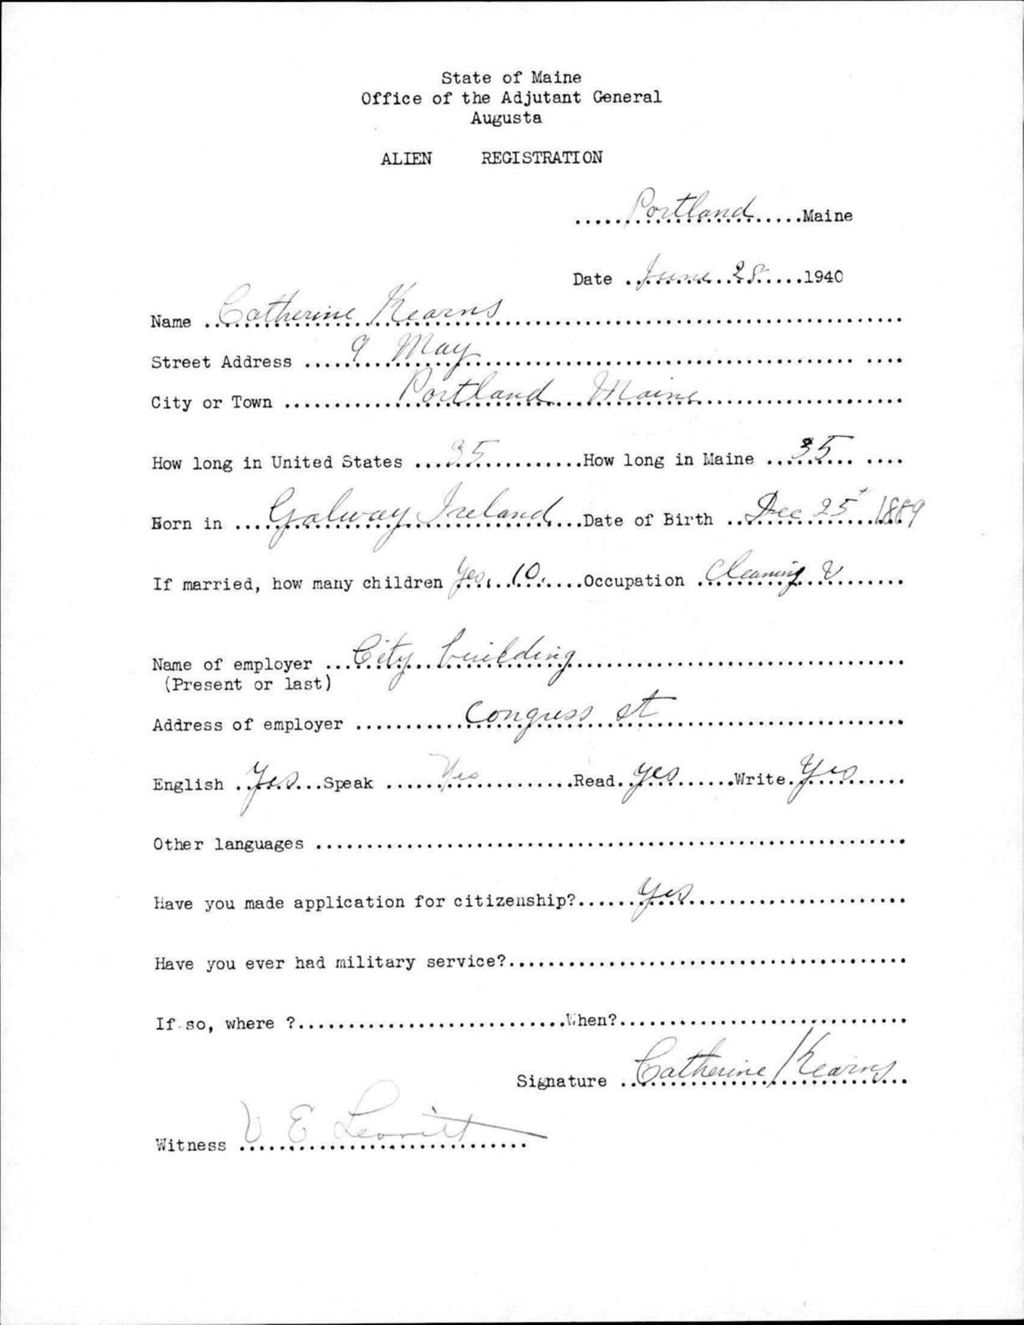 State of Maine
Office of the Adjutant General
Augusta
ALIEN REGISTRATION
Portland Maine
Date June 28 1940
Name Catherine Kearns
Street Address 9 May
City or Town Portland Maine
How long in United States 35 How long in Maine 35
Born in Galway Ireland Date of Birth Dec 25 1889
If married, how many children Yes. 10. Occupation Cleaning
Name of employer City building
(Present or last)
Address of employer Congress st
English Yes Speak Yes Read yes Write Yes
Other languages
Have you made application for citizenship? Yes
Have you ever had military service?
If so, where ? When?
Signature Catherine Kearns
Witness V E Leavitt